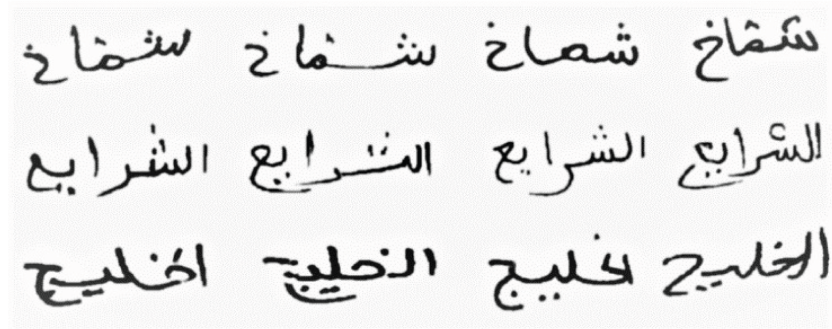 شماخ شماخ شماخ شماخ
الشرايع الشرايع الشرايع الشرايع
الخليج الخليج الخليج الخليج